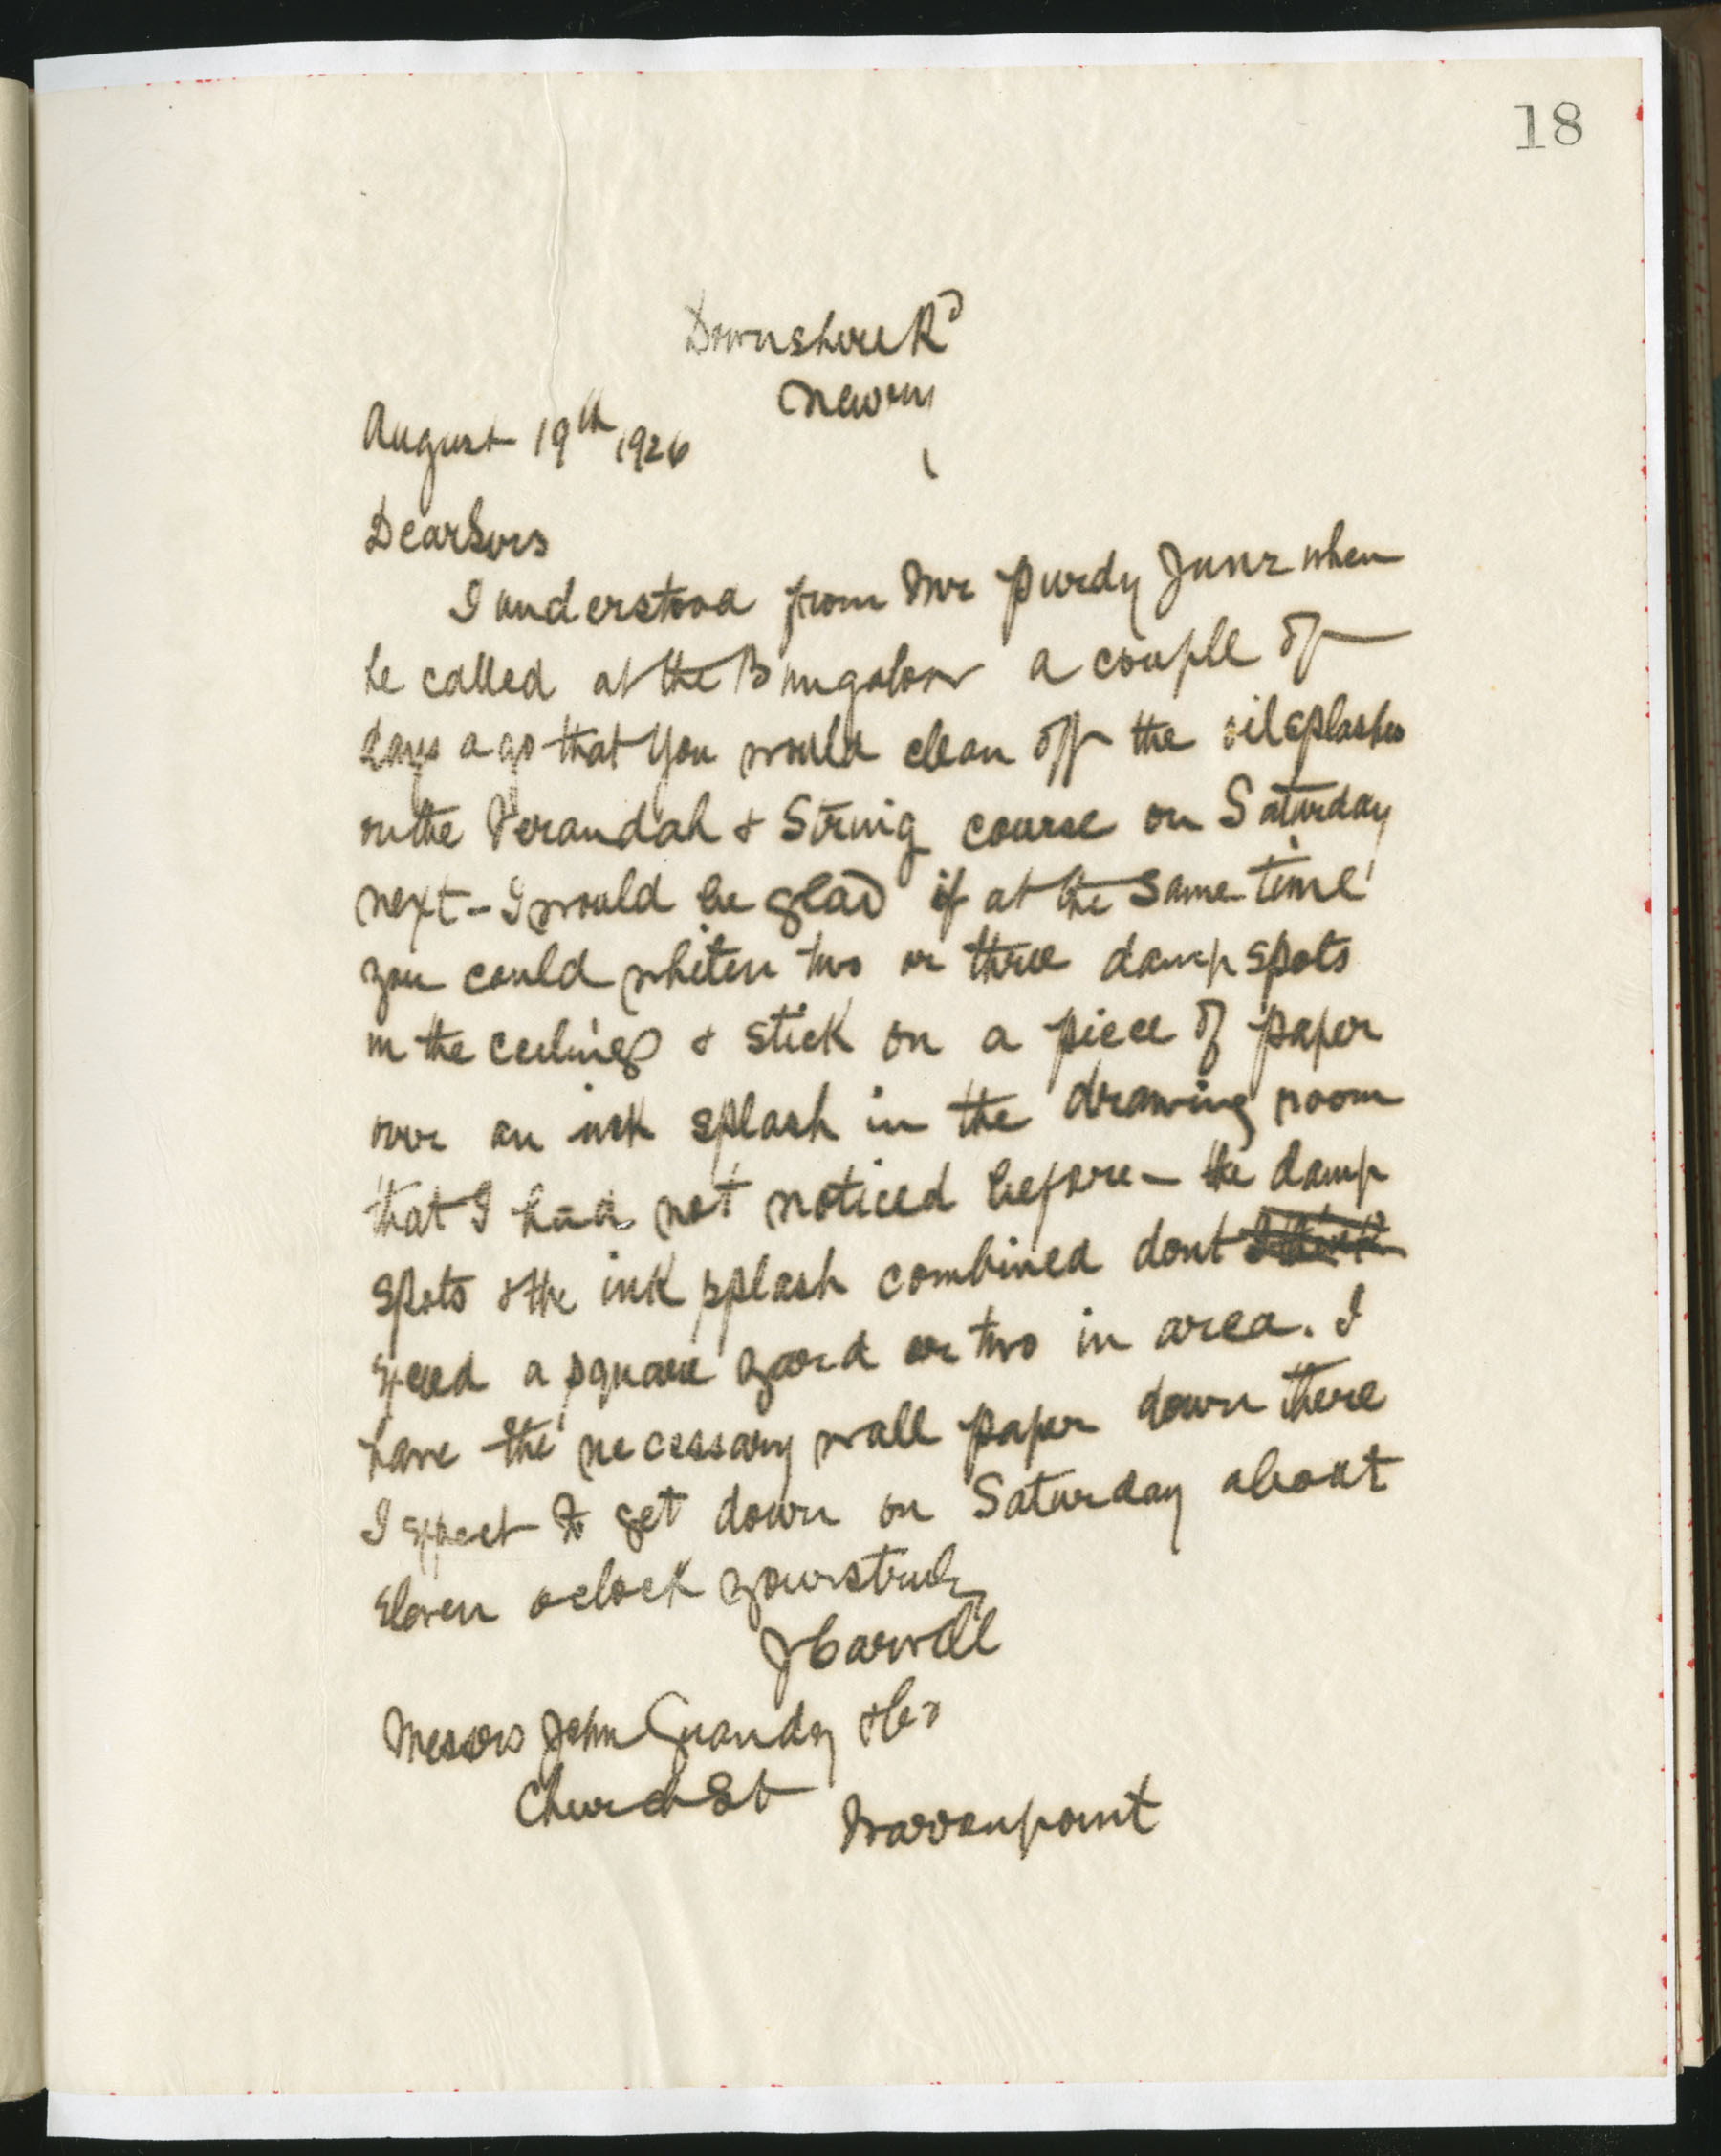 18
Downshire Rd
Newry
August 19th 1926
Dear Sirs
I understood from Mr Purdy Junr when
he called at the Bungalow a couple of
days ago that you would clean off the oil splashes
on the Verandah & String course on Saturday
next - I would be glad if at the same time
you could whiten two or three damp spots
in the ceilings & stick on a piece of paper
over an ink splash in the drawing room
that I had not noticed before - the damp
spots & the ink splash combined dont
exceed a square yard or two in area. I
have the necessary wall paper down there
I expect to get down on Saturday about
Eleven oclock yours truly
J Carvill
Messrs John & Co
Church St
Warrenpoint